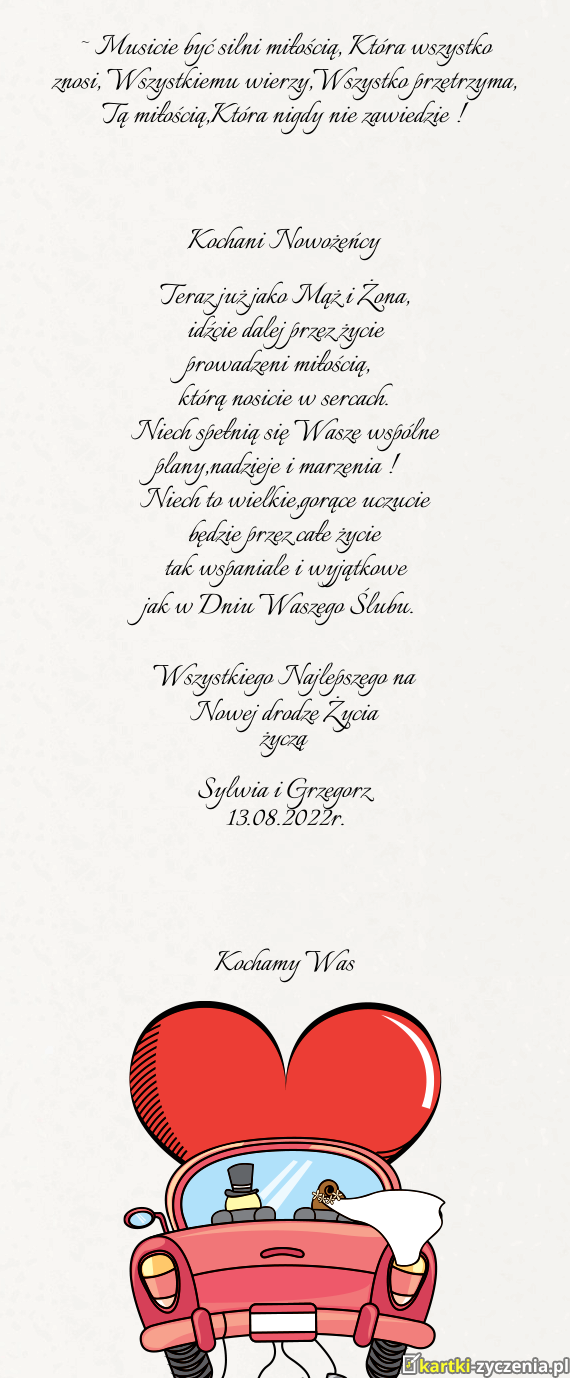 ~ Musicie być silni miłością, Która wszystko
znosi, Wszystkiemu wierzy,Wszystko przetrzyma,
Tą miłością,Która nigdy nie zawiedzie !
Kochani Nowożeńcy
Teraz już jako Mąż i Żona,
idźcie dalej przez życie
prowadzeni miłością,
którą nosicie w sercach.
Niech spełnią się Wasze wspólne
plany,nadzieje i marzenia !
Niech to wielkie,gorące uczucie
będzie przez całe życie
tak wspaniale i wyjątkowe
jak w Dniu Waszego Ślubu.
Wszystkiego Najlepszego na
Nowej drodze Życia
życzą
Sylwia i Grzegorz
13.08.2022r.
Kochamy Was
kartki-zyczenia.pl